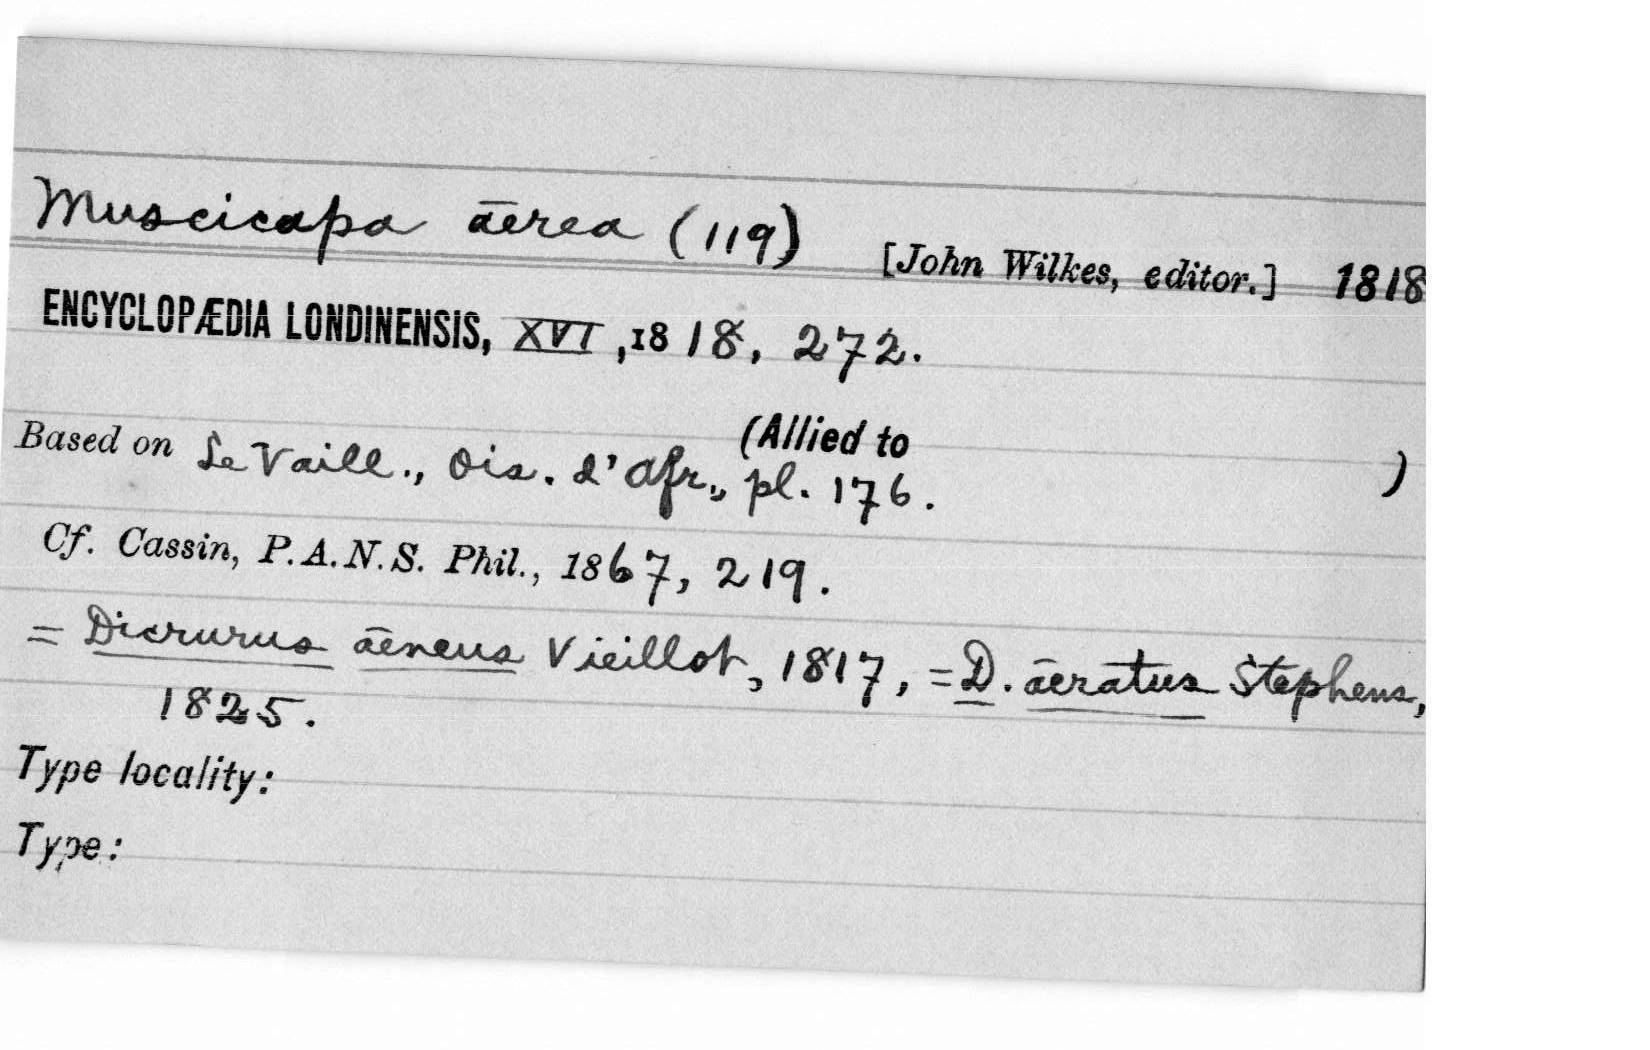 Muscicapa āerea (119) [John Wilkes, editor.] 1818
ENCYCLOPÆDIA LONDINENSIS, XVI, 1818, 272.
(Allied to )
Based on Le Vaill., Ois. d'Afr., pl. 176.
Cf. Cassin, P.A.N.S. Phil., 1867, 219.
= Dicrurus āeneus Vieillot, 1817, = D. āeratus Stephens,
1825.
Type locality:
Type: